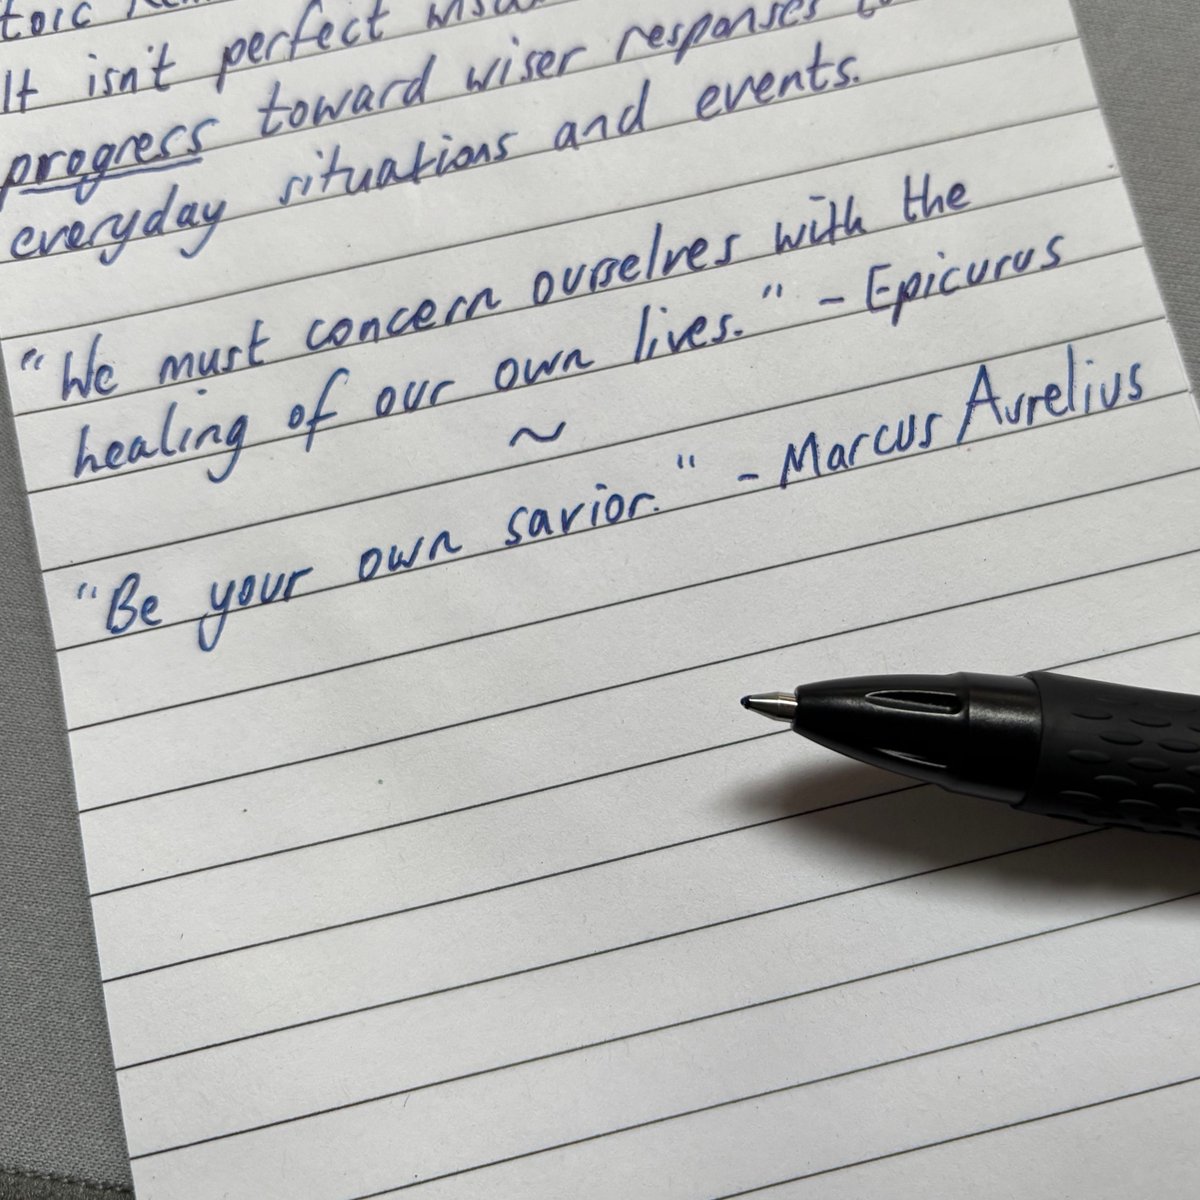 It isn't perfect
progress toward wiser responses
everyday situations and events.
"We must concern ourselves with the
healing of our own lives." - Epicurus
~
"Be your own savior." - Marcus Aurelius